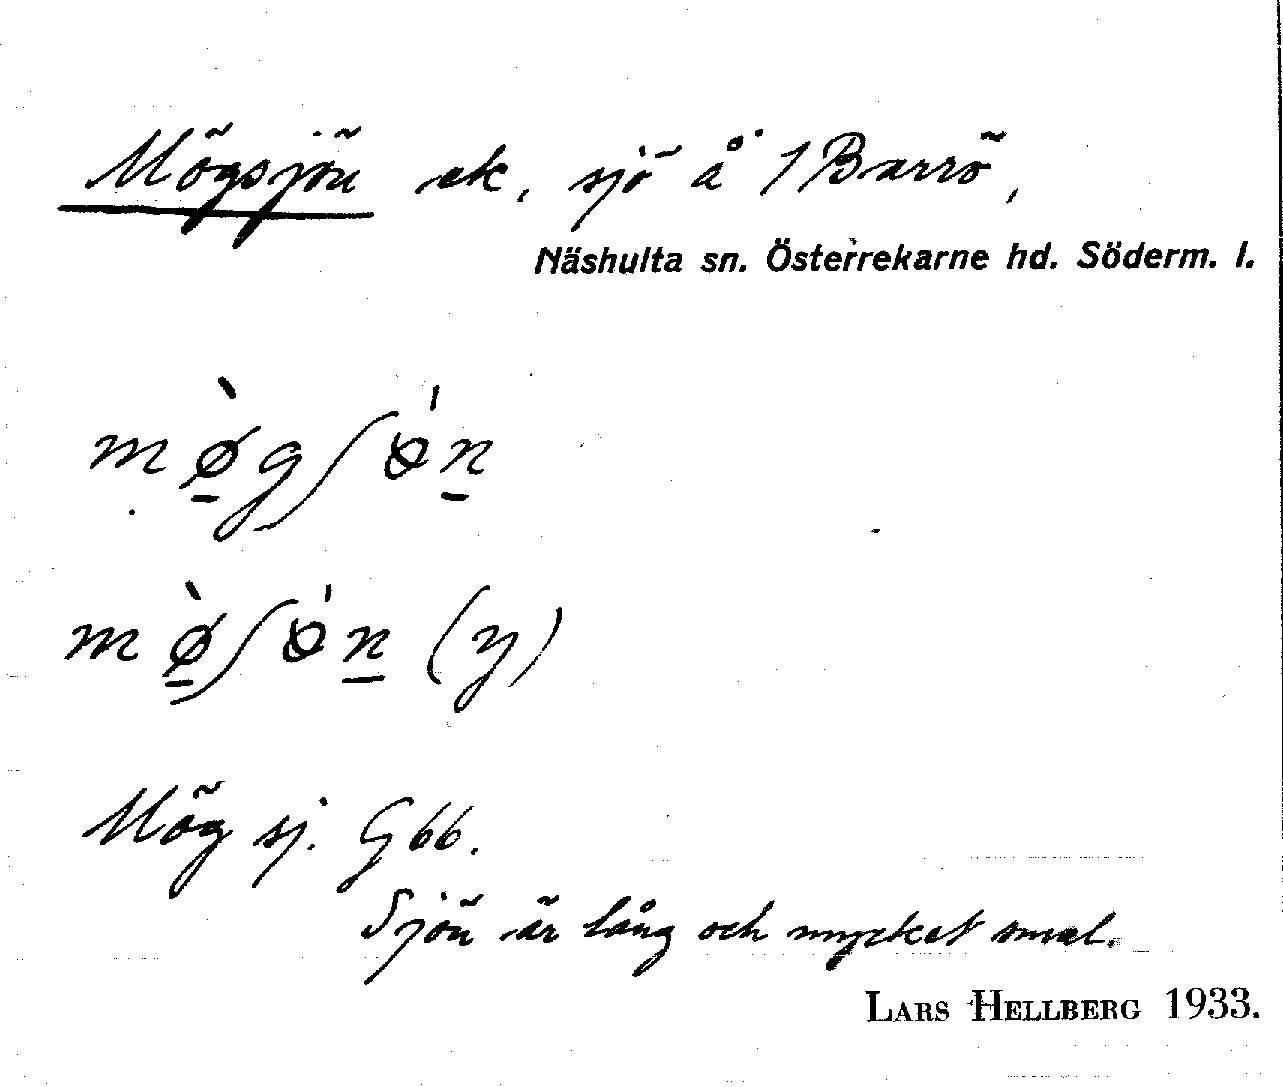 Mögsjön ek, sjö å 1 Barrö,
Näshulta sn. Österrekarne hd. Söderm. l.
mø̀gʃɵ́n
mø̀ʃɵ́n (y)
Mög sj. G 66.
Sjön är lång och mycket smal.
LARS HELLBERG 1933.